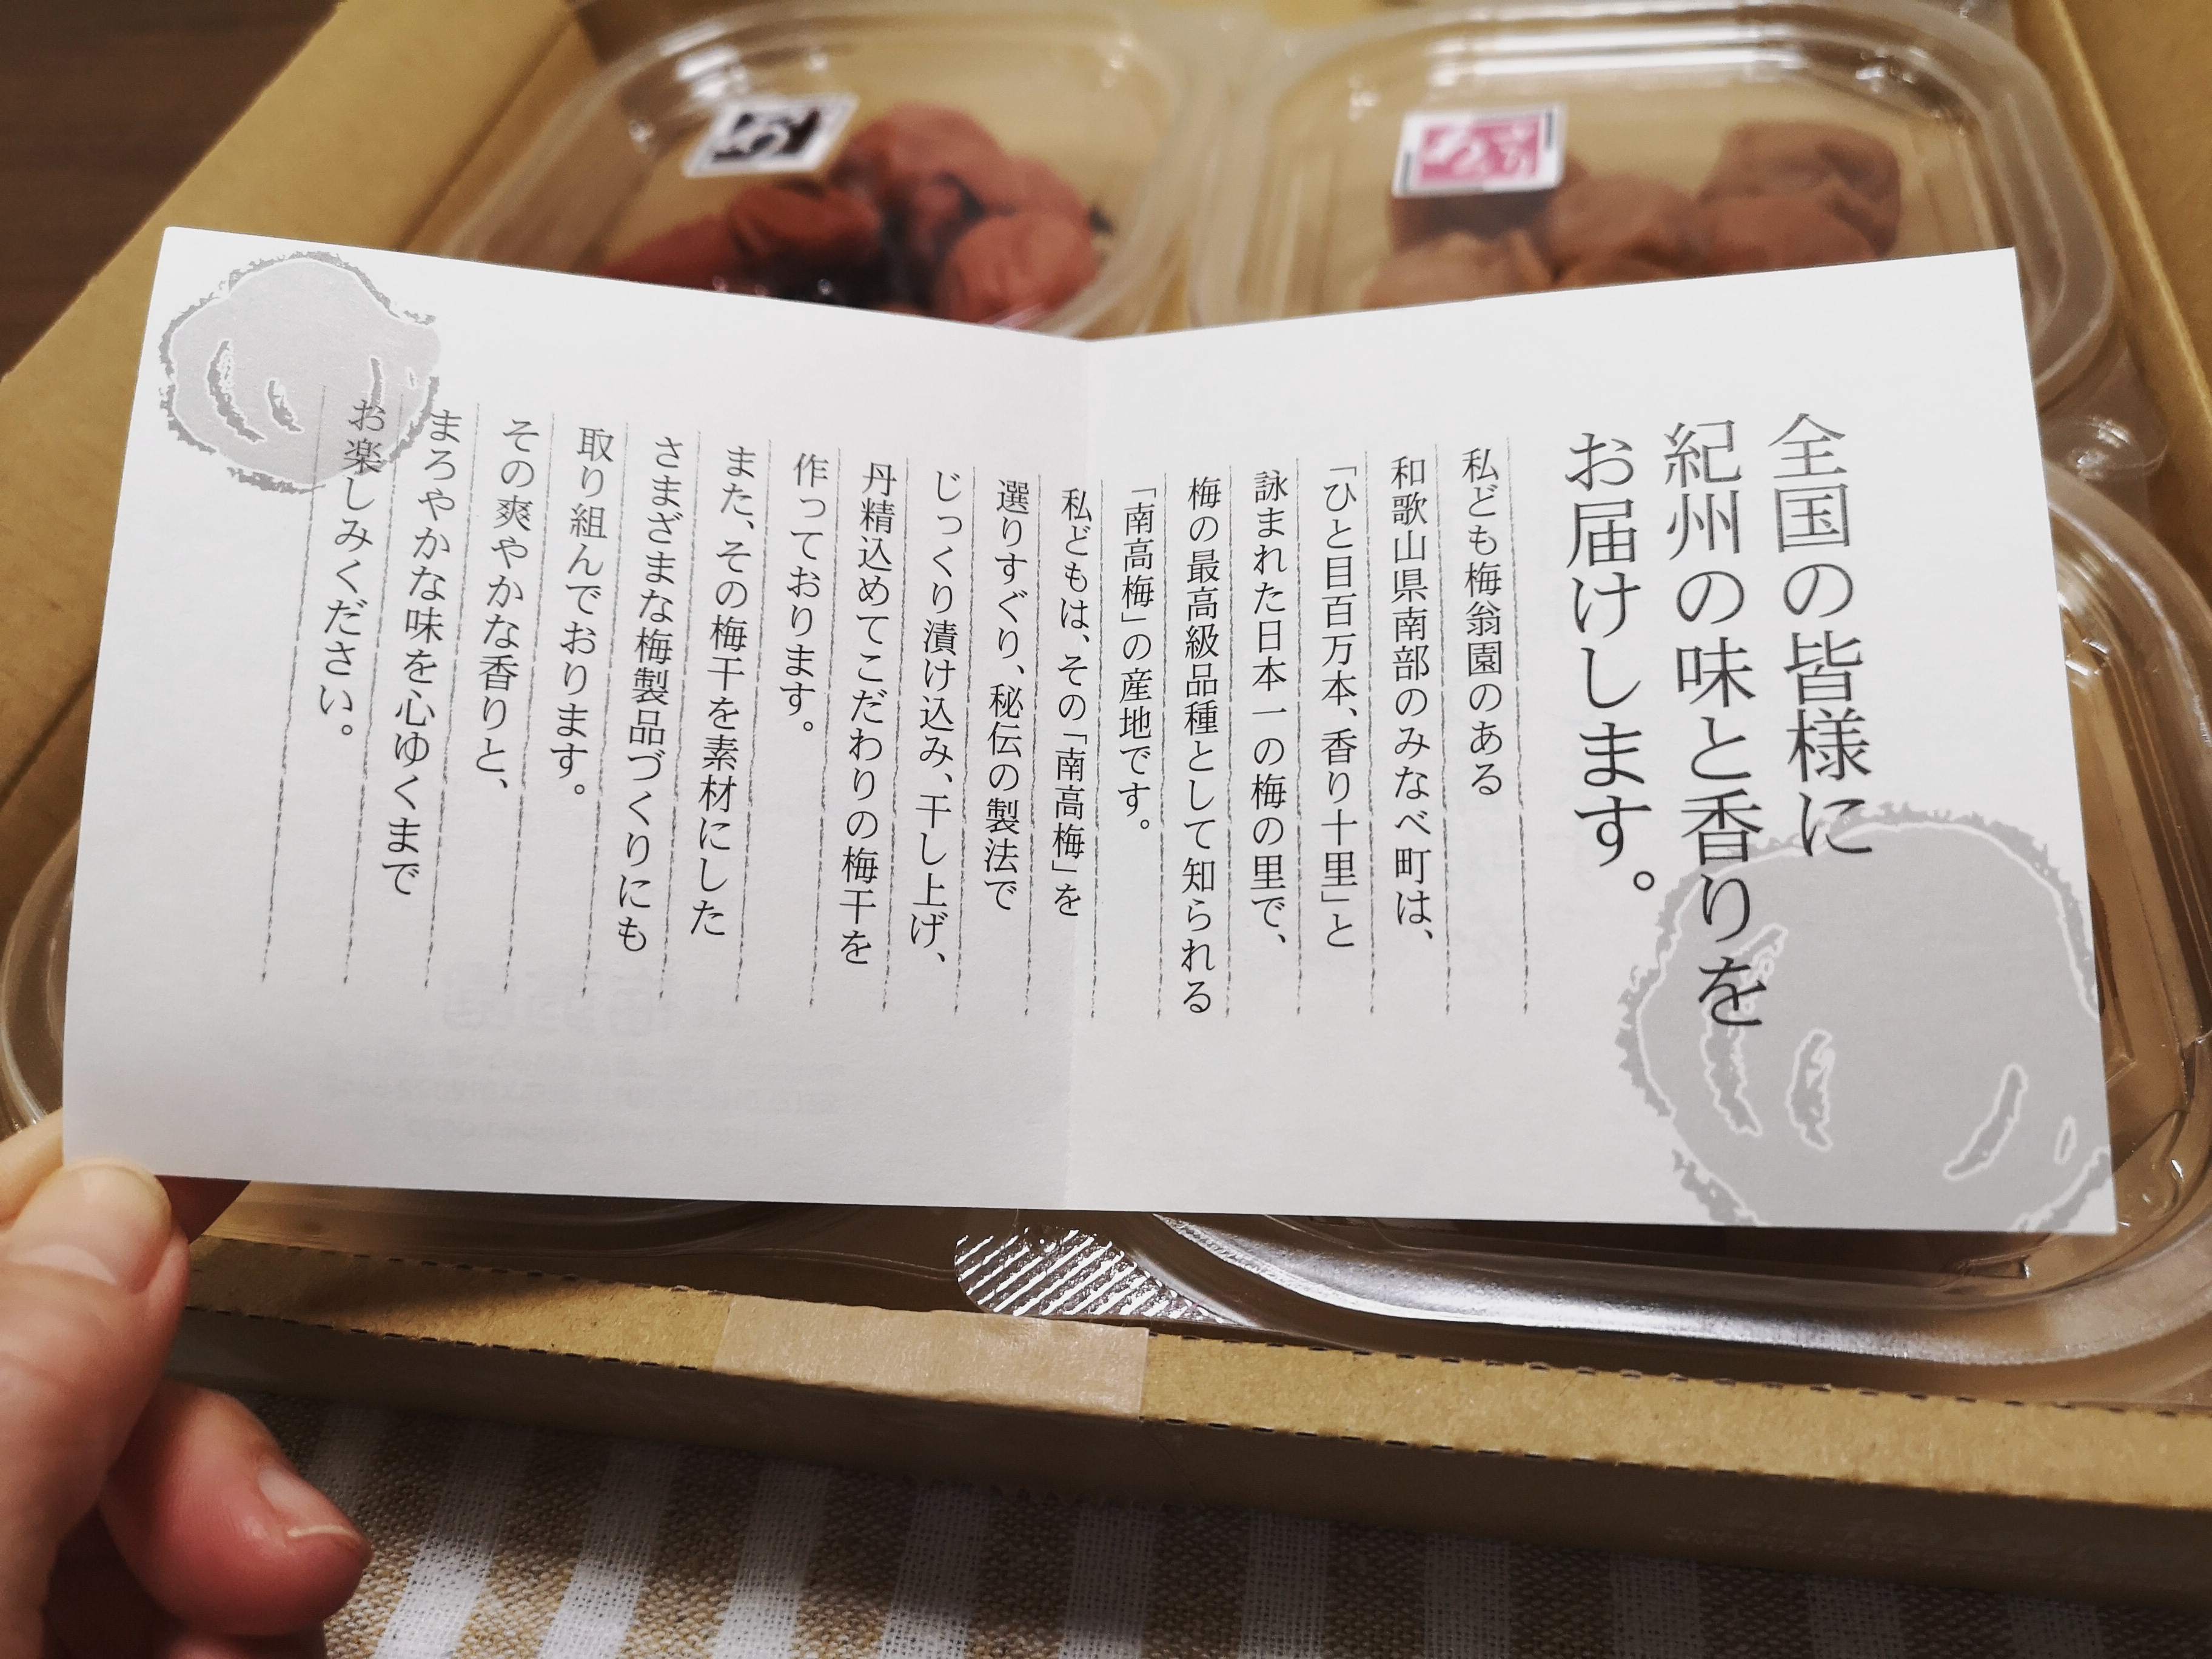 全国の皆様に
紀州の味と香りを
お届けします。
私ども梅翁園のある
和歌山県南部のみなべ町は、
「ひと目百万本、香り十里」と
詠まれた日本一の梅の里で、
梅の最高級品種として知られる
「南高梅」の産地です。
私どもは、その「南高梅」を
選りすぐり、秘伝の製法で
じっくり漬け込み、干し上げ、
丹精込めてこだわりの梅干を
作っております。
また、その梅干を素材にした
さまざまな梅製品づくりにも
取り組んでおります。
その爽やかな香りと、
まろやかな味を心ゆくまで
お楽しみください。